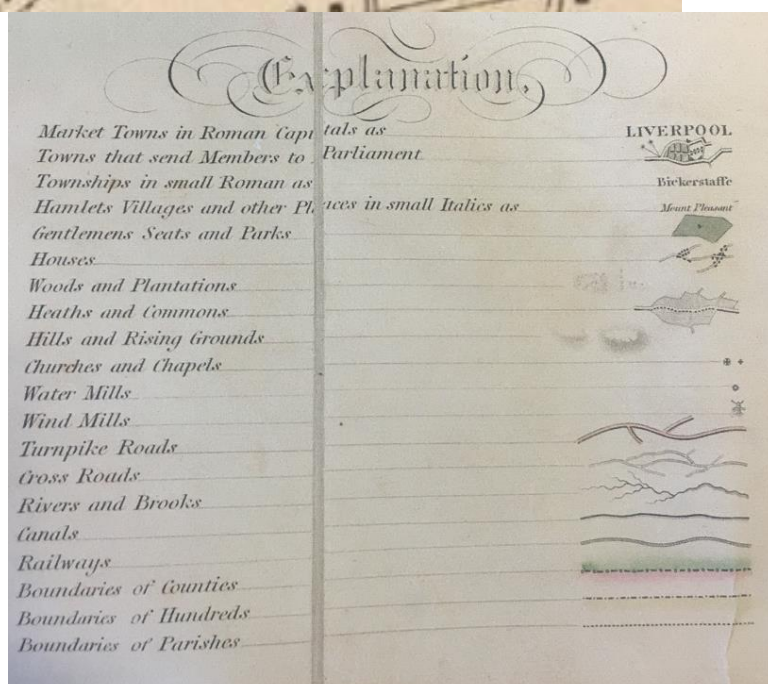 Explanation,
Market Towns in Roman Capitals as LIVERPOOL
Towns that send Members to Parliament
Townships in small Roman as Bickerstaffe
Hamlets Villages and other Places in small Italics as Mount Pleasant
Gentlemens Seats and Parks
Houses
Woods and Plantations
Heaths and Commons
Hills and Rising Grounds
Churches and Chapels
Water Mills
Wind Mills
Turnpike Roads
Cross Roads
Rivers and Brooks
Canals
Railways
Boundaries of Counties
Boundaries of Hundreds
Boundaries of Parishes